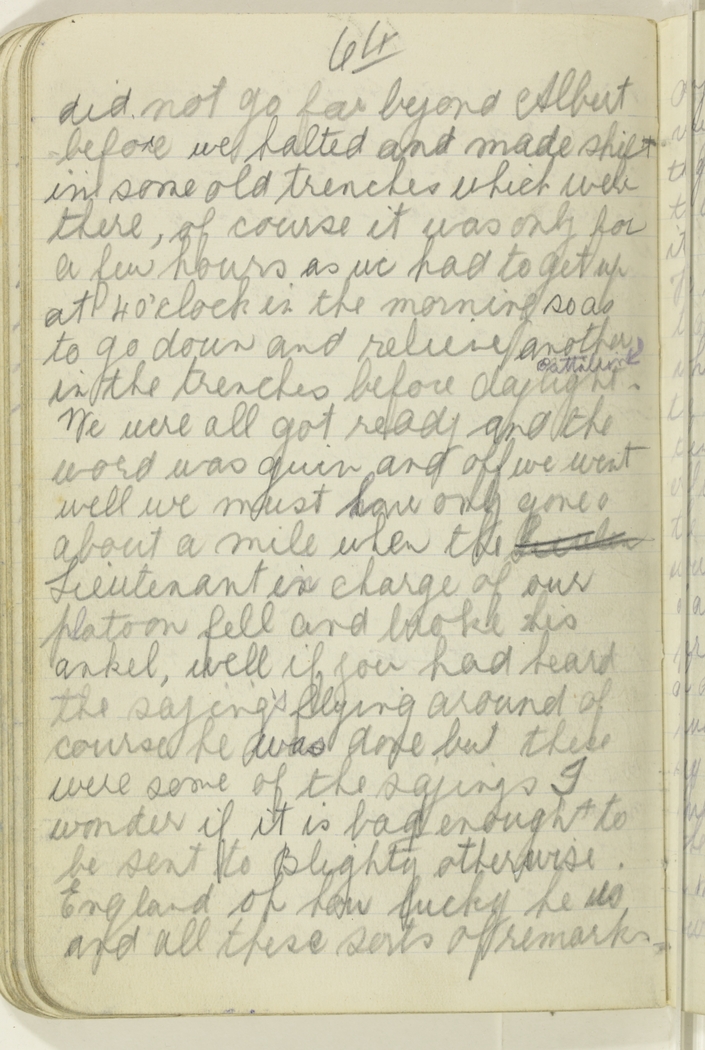 64
did not go far beyond Albert
before we halted and made shift
in some old trenches which were
there, of course it was only for
a few hours as we had to get up
at 4 o'clock in the morning so as
to go down and relieve another
battalion
in the trenches before daylight.
We were all got ready and the
word was given and off we went
well we must have only gone
about a mile when the
Lieutenant in charge of our
platoon fell and broke his
ankel, well if you had heard
the sayings flying around of
course he was done but these
were some of the sayings I
wonder if it is bad enough to
be sent to Blighty otherwise.
England oh how lucky he is
and all these sorts of remarks.